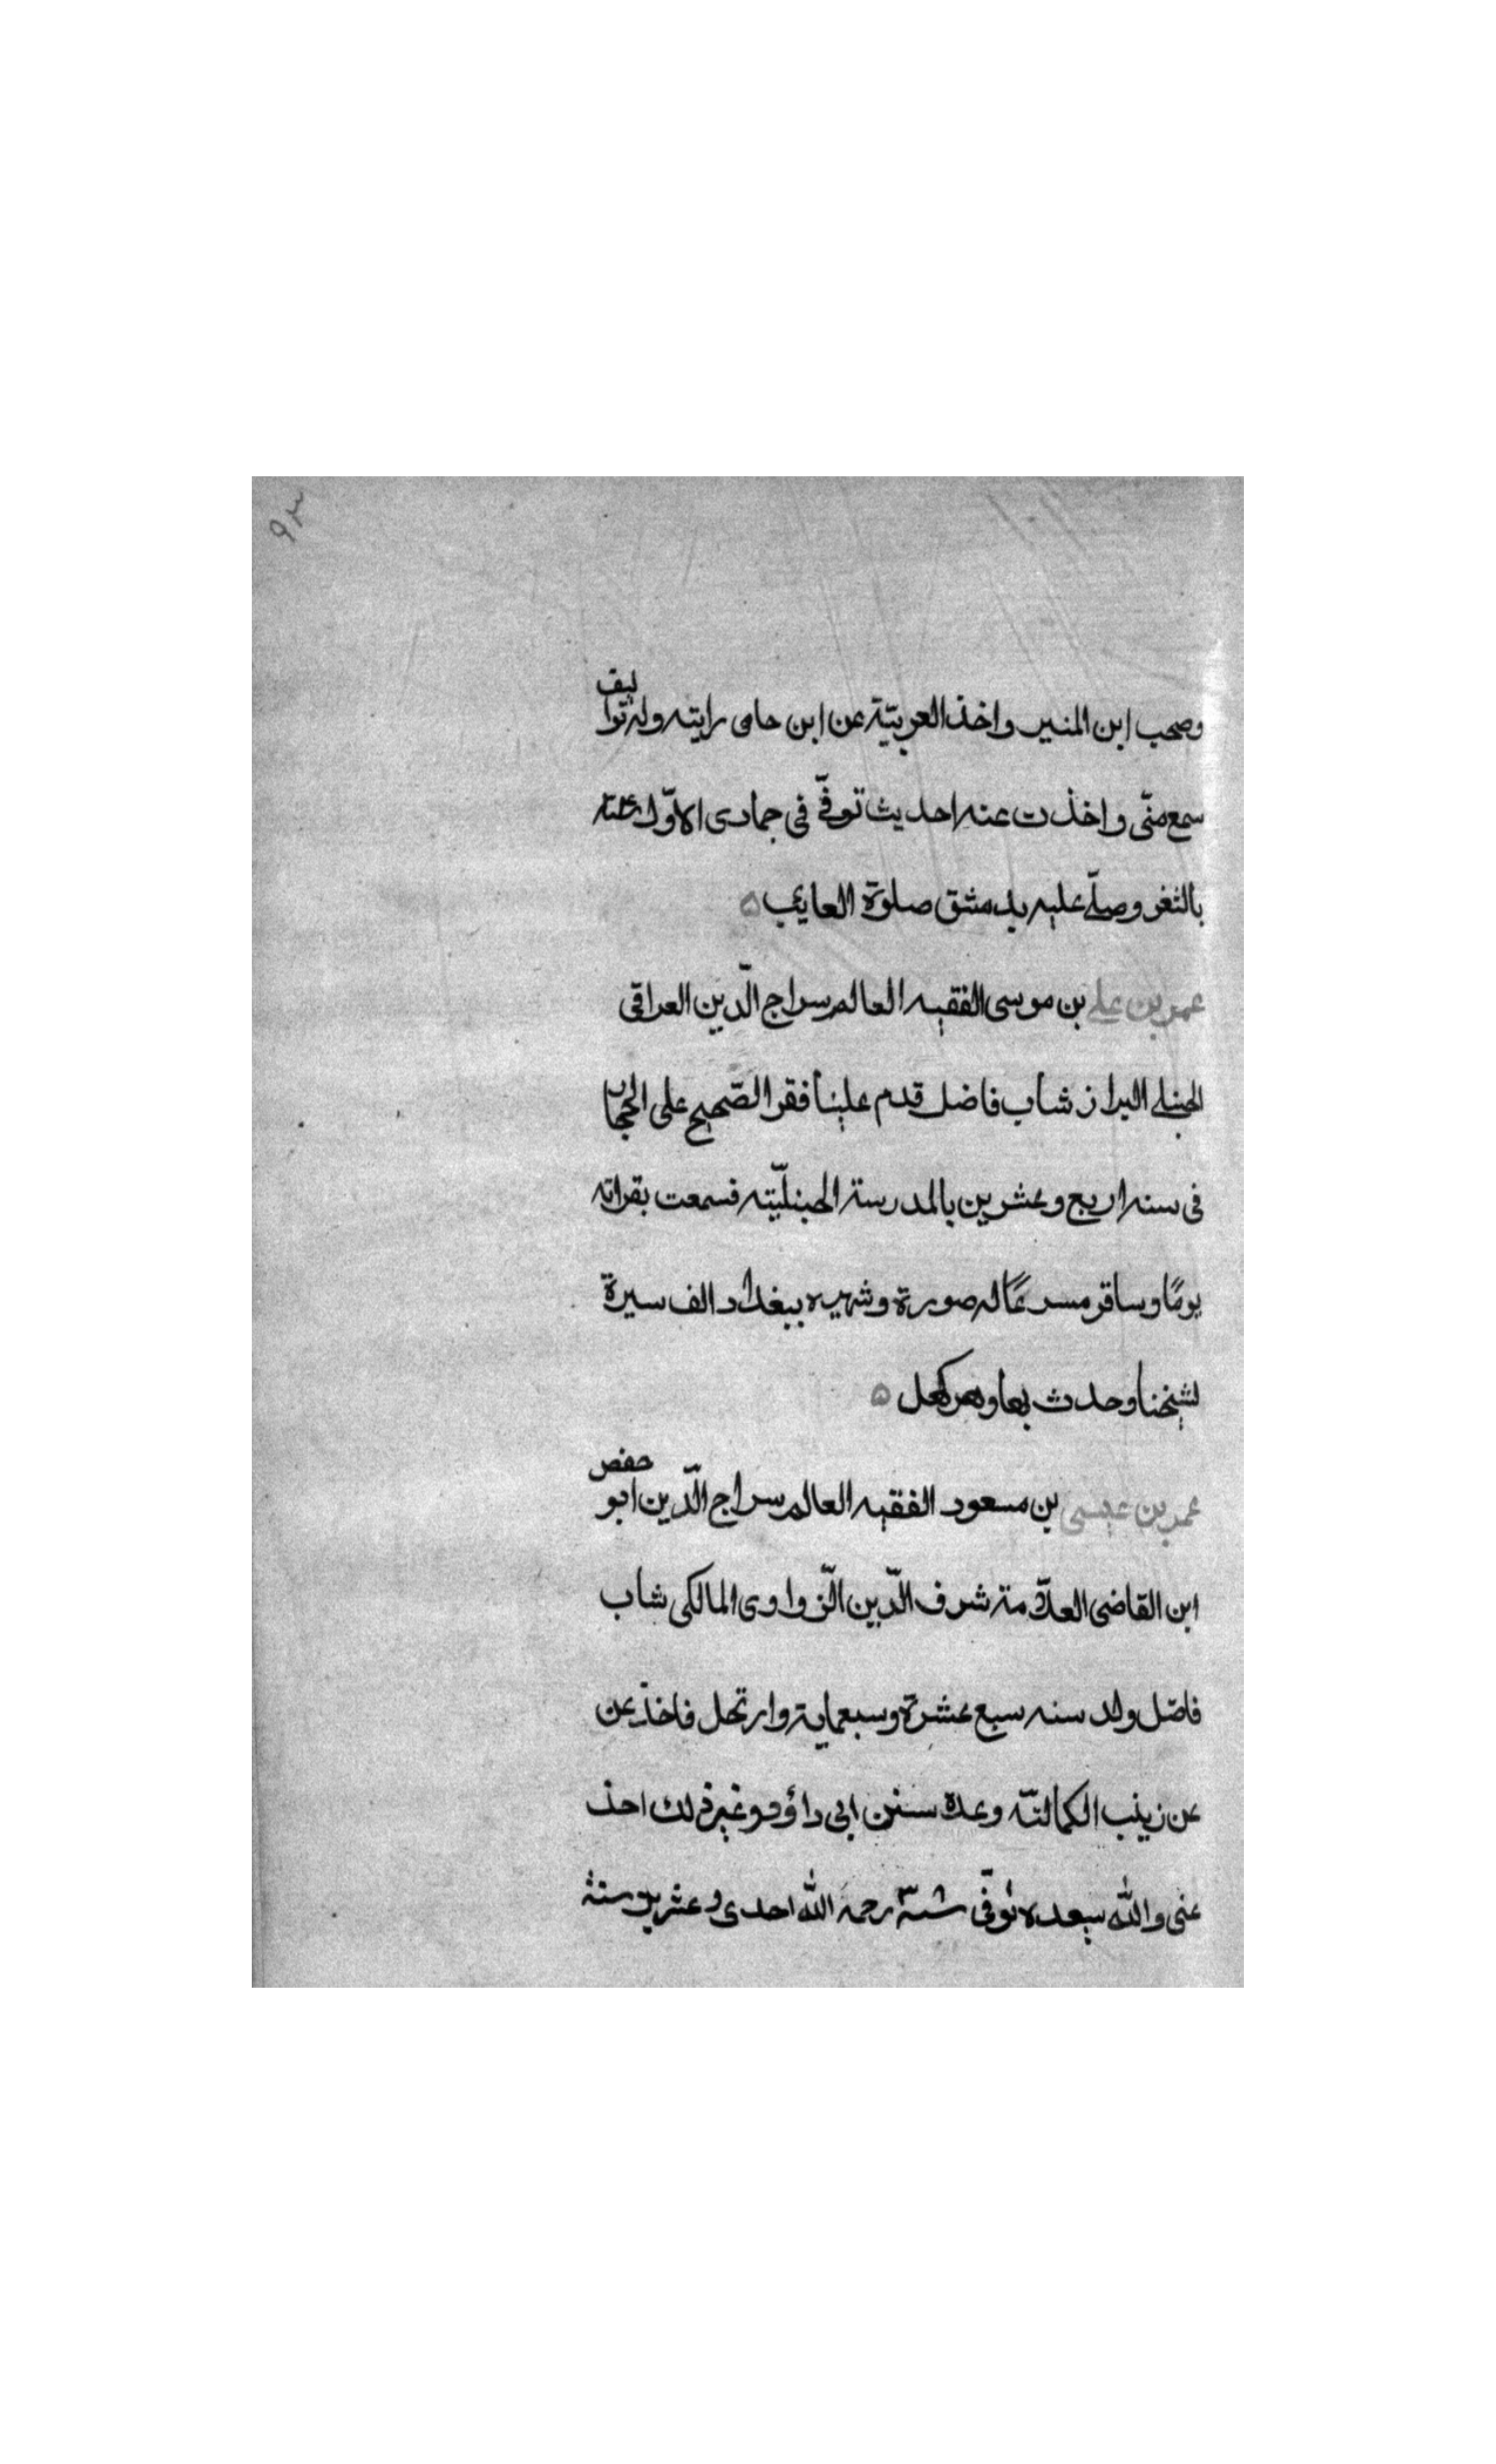 ٩٣
وصحب ابن المنير واخذ العربيّة عن ابن حامى رايته وله تواليف
سمع منّى واخذت عنه احديث توفّى فى جمادى الاوّل
بالثغر وصلّے عليه بدمشق صلوة العايب
عمر بن علے بن موسى الفقيه العالم سراج الدّين العراقى
الحنبلے البراز شاب فاضل قدم علينا فقرا الصّحيح على الحجار
فى سنه اربع وعشرين بالمدرسة الحنبليّته فسمعت بقراته
يومًا وسافر مسرعًا له صورة وشهره ببغداد الف سيرة
لشيخنا وحدث بها
عمر بن عيسى بن مسعود الفقيه العالم سراج الدّين ابو حفص
ابن القاضى العلّامة شرف الدّين الزّواوى المالكى شاب
فاضل ولد سنه سبع عشرة وسبعماية وارتحل فاخذ عن
عن زينب الكمالتّه وعدة سنن ابى داؤد وغير ذلك احذ
عنى والله سعده توفّى رحمه الله احدى وعشرين سنة